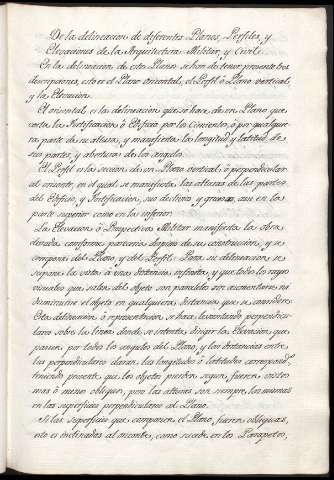 De la delineacion de diferentes Planos, Perfiles, y
Elevaciones de la Arquitectura Militar, y Civil.
En la delineacion de estos Planos se han de tener presente tres
descripciones, esto es el Plano orizontal, el Perfil ó Plano vertical,
y la Elevacion.
El orizontal es la delineacion que se hace de un Plano que
corta la Fortificacion ó Edificio por los Cimientos, ó por qualquiera
parte de su altura, y manifiesta la longitud y latitud de
sus partes, y aberturas de los angulos.
El Perfil es la seccion de un Plano vertical, ó perpendicular
al orizonte, en el qual se manifiesta las alturas de las partes
del Edificio, y Fortificacion, sus declivios y gruesos, aun en la
parte superior como en la inferior.
La Elevacion ó Perspectiva Militar manifiesta la obra
elevada conforme pareceria despues de su construccion, y se
compone del Plano, y del Perfil: Para su delineacion, se
supone la vista á una distancia infinita, y que todos los rayos
visuales que salen del objeto son paralelos sin aumentarse ni
disminuirse el objeto en qualquiera distancia que se considere.
Esta delineacion ó representacion se hace levantando perpendicu-
lares sobre la linea donde se intenta dirigir la Elevacion, que
pasen por todos los angulos del Plano, y las distancias entre
las perpendiculares daran las longitudes ó latitudes correspond.tes
teniendo presente que los objetos pierden segun fueren vistos
mas ó menos obliquos, pero las alturas son siempre las mismas
en las superficies perpendiculares al Plano.
Si las superficies que componen el Plano fueren obliquas,
esto es inclinadas al orizonte, como sucede en los Parapetos,